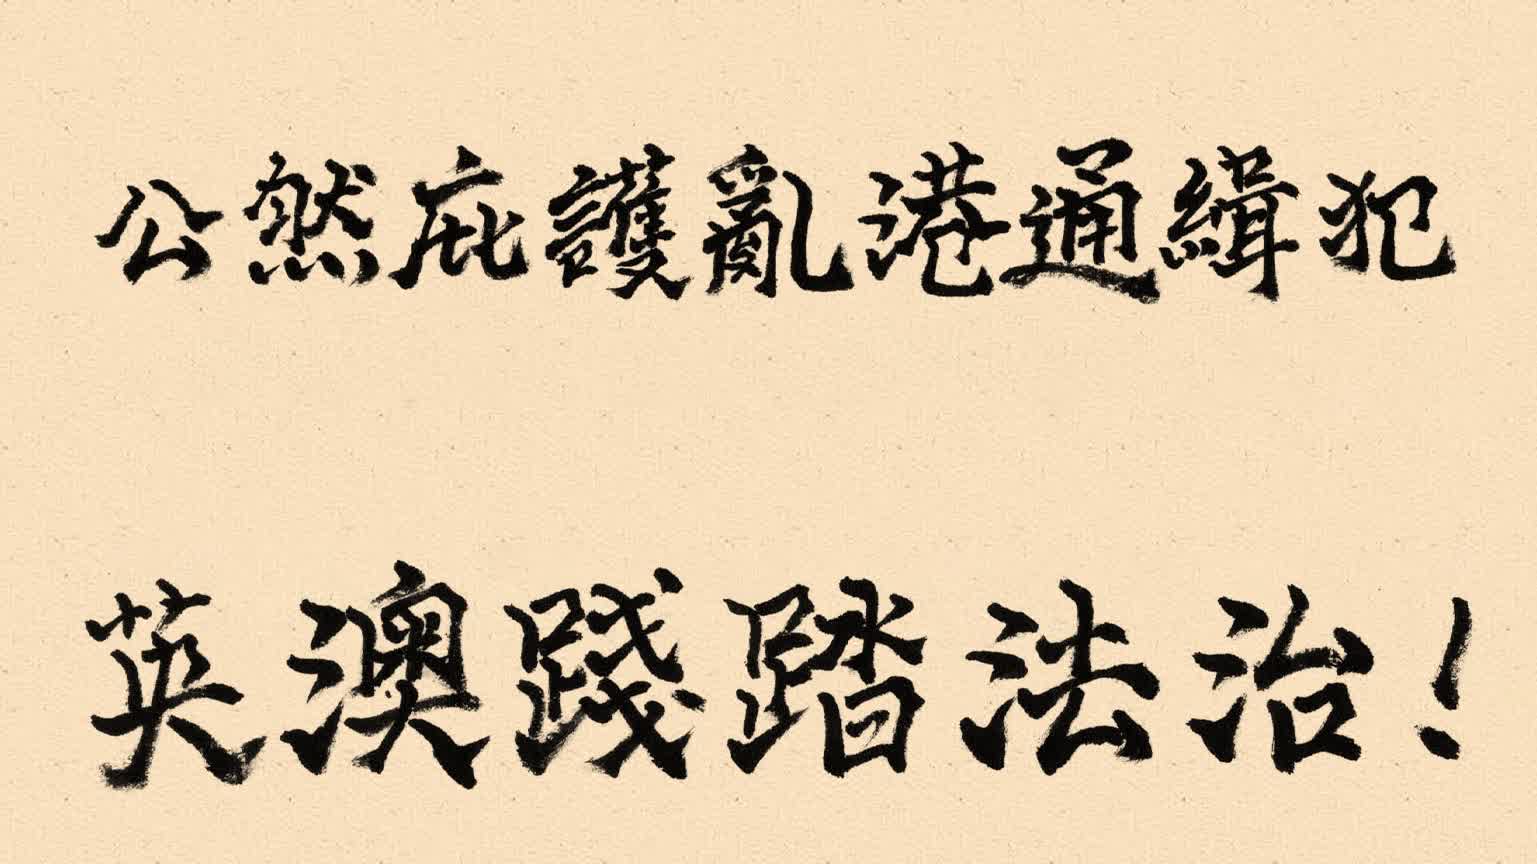 公然庇護亂港通緝犯
英澳踐踏法治！